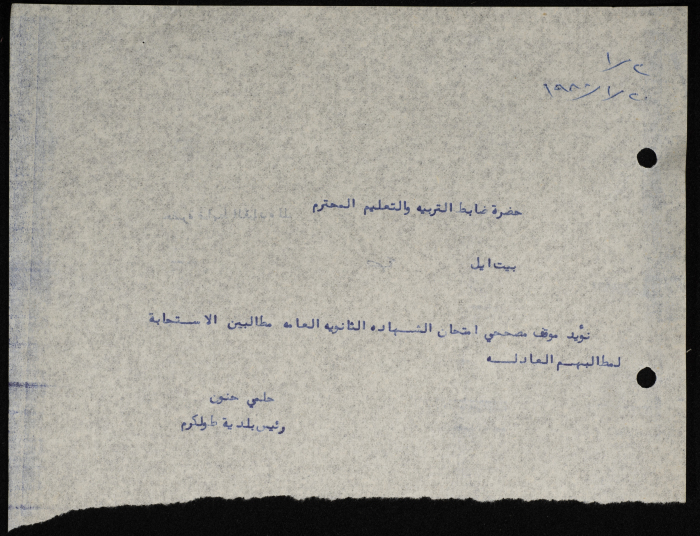 حضرة ضابط التربيه والتعليم المحترم
بيت ايل
نؤيد موقف مصححي امتحان الشهاده الثانويه العامه مطالبين الاستجابة
لمطالبهم العادله
حلمي حنون
رئيس بلدية طولكرم